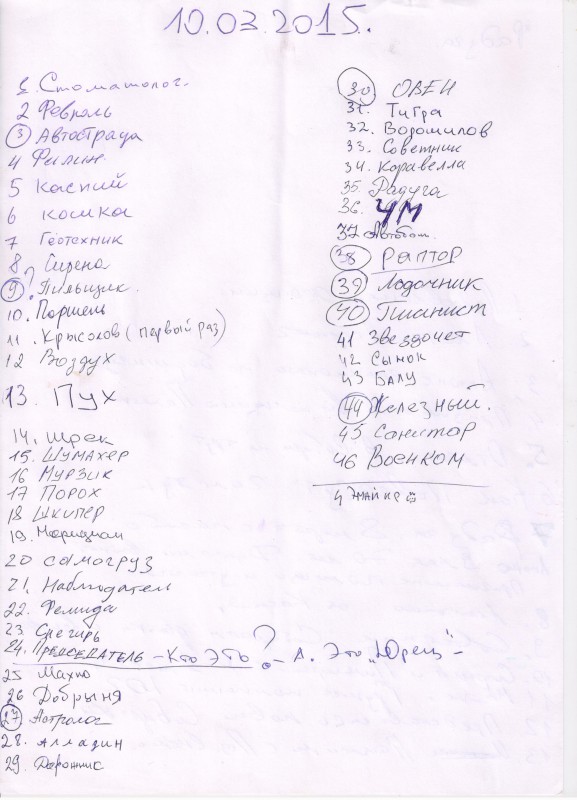 10.03.2015.
1. Стоматолог.
2 Февраль
3 Автострада
4 Филин
5 Каспий
6 кошка
7 Геотехник
8 Сирена
9 ? Пильщик.
10. Поршень
11. Крысолов (первый раз)
12 Воздух
13. Пух
14. Шрек
15. ШУМАХЕР
16 МУРЗИК
17 ПОРОХ
18 ШКИПЕР
19. Меридиан
20 самогруз
21. Наблюдатель
22. Фемида
23. Снегирь
24. ПРЕДСЕДАТЕЛЬ - КТО ЭТО? - А. Это "Юрец" -
25 Махно
26 Добрыня
27 Астролог
28. Алладин
29. Дорожник
30 ОВЕН
31. Тигра
32. Ворошилов
33. Советник
34. Каравелла
35. Радуга
36. ЧМ
37 Автобот.
38 Раптор
39 Лодочник
40 Пианист
41 Звездочет
42 Сынок
43 БАЛУ
44 Железный.
45 Санитар
46 Военком